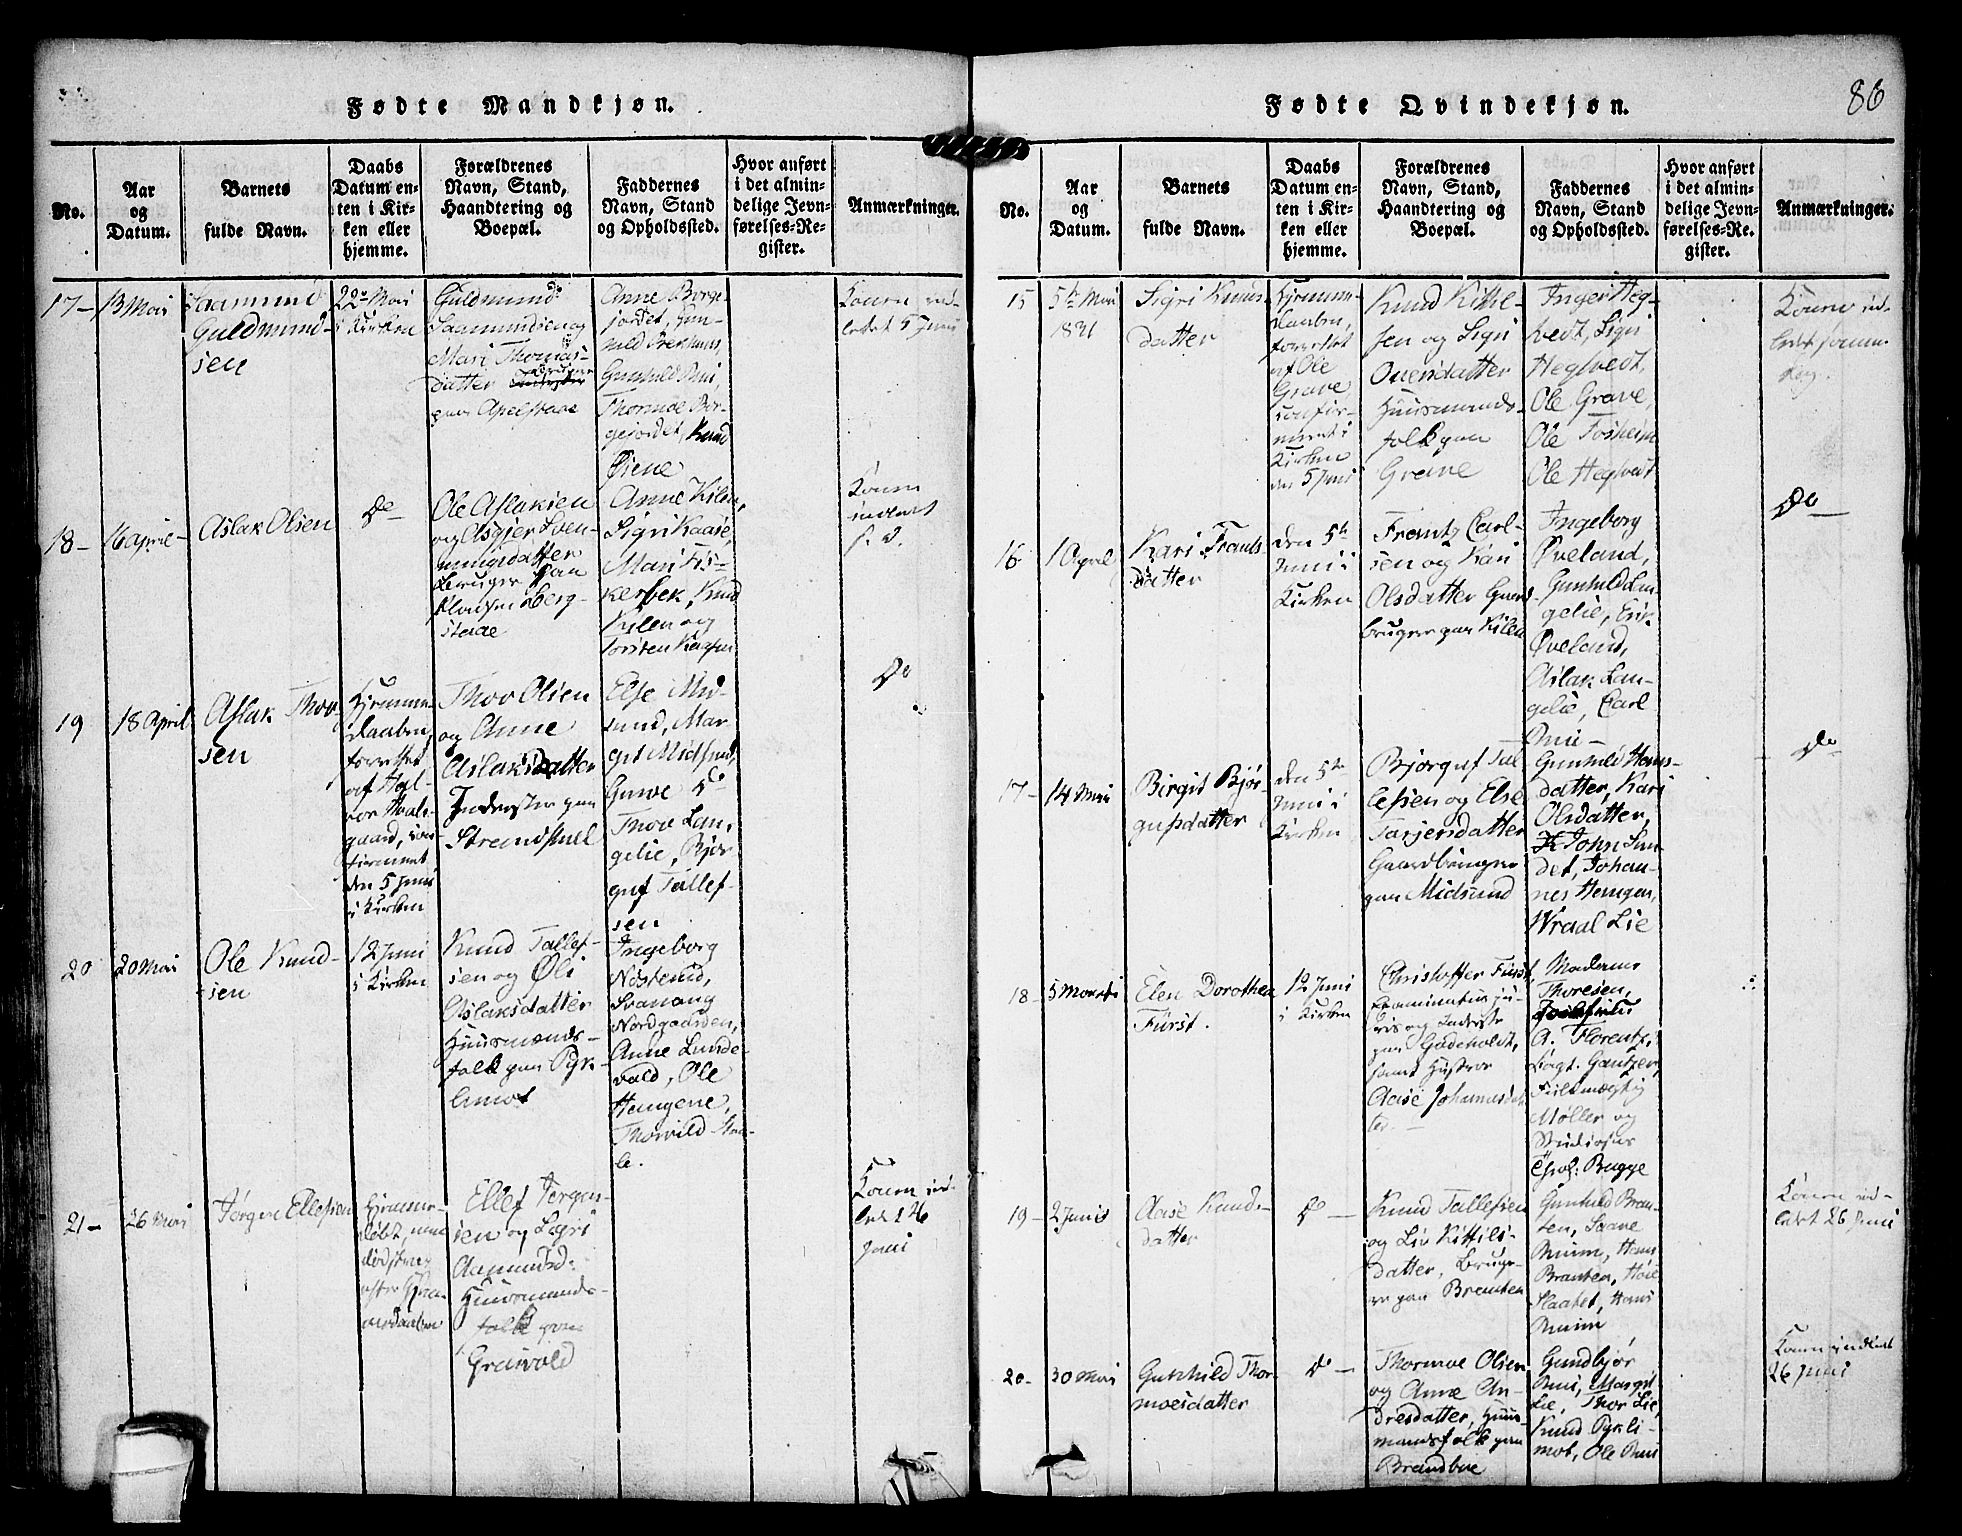 Fødte Mandkjøn.
No.
Aar
og
Datum.
Barnets
fulde Navn.
Daabs
Datum en-
ten i Kir-
ken eller
hjemme.
Forældrenes
Navn, Stand,
Haandtering og
Boepæl.
Faddernes
Navn, Stand
og Opholdssted.
Hvor anført
i det almin-
delige Jevn-
førelses-Re-
gister.
Anmærkninger.
17-
13 Mai
Saamund
Guldmund-
sen
22de Mai
i Kirken
Guldmund
Saamundsen og
Mari Thomas-
datter
paa Apelstaae
Anne Borge-
jordet, Gun-
nild
Gunhild Moi,
Thormoe Bor-
gejordet, Knud
Øiene
Konen ind-
ledet 5 Juni
18-
16 April-
Aslak Olsen
Do
Ole Aslaksen
og Asgjer Sven-
nungsdatter
Bruger paa
Klausenberg-
staae
Anne Kilen,
Sigri Kaase,
Mari Fis-
kerbek, Knud
Kilen og
Torsten
Konen
indledt
s. D.
19
18 April
Aslak Thov-
sen
Hjemme-
daaben,
forrettet
af Hal-
vor Haats-
gaard, con-
firmeret
den 5 Juni
i Kirken
Thov Olsen
og Anne
Aslaksdatter
Inderster paa
Strandstull
Else Mid-
sund, Mar-
git Midsund,
Gunve Do
Thov Lan-
gelie, Bjør-
guf Tallef-
sen
Do
20
20 Mai
Ole Knud-
sen
12 Juni
i Kirken
Knud Tallef-
sen og Øli
Aslaksdatter
Huusmands-
folk paa Pyk-
limot
Ingeborg
Nostrud,
Svanaug
Nordgaarden,
Anne Lunde-
vald, Ole
Haugene,
Thorvild
21-
26 Mai
Jørgen Ellefsen
Hjemme-
døbt, men
død strax
efter Hjem-
medaaben
Ellef Jørgen-
sen og Sigri
Aamundsd:
Huusmands-
folk paa
Graivold
Konen ind-
led 26
Juni
Fødte Qvindekjøn.
86
No.
Aar
og
Datum.
Barnets
fulde Navn.
Daabs
Datum en-
ten i Kir-
ken eller
hjemme.
Forældrenes
Navn, Stand,
Haandtering og
Boepæl.
Faddernes
Navn, Stand
og Opholdssted.
Hvor anført
i det almin-
delige Jevn-
førelses-Re-
gister.
Anmærkninger.
15
5te Mai
1831
Sigri Knuds-
datter
Hjemme-
daaben,
forrettet
af Ole
Grave
confir-
meret i
Kirken
den 5 Juni
Knud Kittil-
sen og Sigri
Ouensdatter
Huusmands-
folk paa
Grave
Inger Heg-
tvedt, Sigri
Hegtvedt,
Ole Grave,
Ole Fosheim
Ole Hegtvedt
Konen ind-
ledet samme
Dag.
16
1 April
Kari Frants-
datter
den 5te
Juni i
Kirken
Frantz Carl-
sen og Kari
Olsdatter Gaard-
bruger paa Kilen
Ingeborg
Øveland,
Gunhild Lan-
gelie, Erik
Øveland,
Aslak Lan-
gelie, Carl
Moi-
Do
17-
14 Mai
Birgit Bjør-
gufsdatter
den 5te
Juni i
Kirken
Bjørguf Tal-
lefsen og Else
Tarjersdatter
Gaardbruger
paa Midsund
Gunhild Hans-
datter, Kari
Olsdatter,
John Sun-
det, Johan-
nes Haugen,
Wraal Lie
Do
18-
5 Marts
Elen Dorothea
Fürst.
12 Juni
i Kirken
Christoffer Fürst,
Examinatus ju-
ris og Inderste
paa Gudeholdt,
samt Hustroe
Aase Johannesdat-
ter. -
Madame
Thoresen,
A. Florentz,
Bogt. Gantzer,
Fuldmægtig
Møller og
Studiosus
Chr: Bugge
19-
2 Juni
Aase Knuds-
datter
Do -
Knud Tallefsen
og Liv Kittils-
datter, Bruge-
re paa Brauten
Gunhild Brau-
ten, Saave
Muim, Hans
Brauten, Hoie
Slaatet, Hans
Muim
Konen ind-
ledet 26 Juni
20-
30 Mai
Gunhild Thor-
moesdatter
Do -
Thormoe Olsen
og Anne An-
dresdatter, Huus-
mandsfolk paa
Brandboe
Gundbjør
Moi, Margit
Lie, Thor Lie,
Knud Pykli-
mot, Ole Moi
Konen indledt
26 Juni